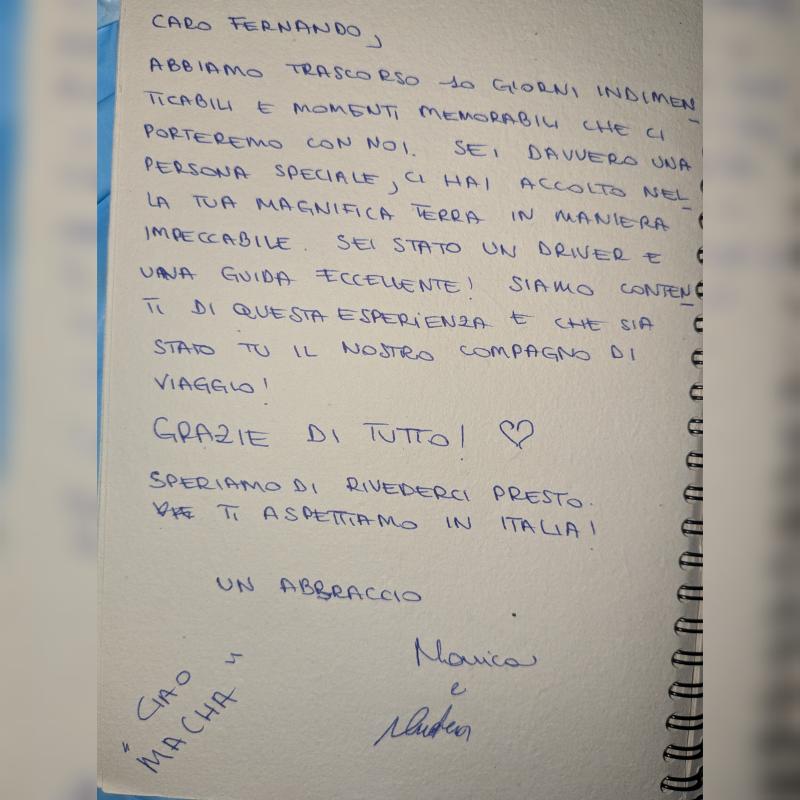 CARO FERNANDO,
ABBIAMO TRASCORSO 10 GIORNI INDIMEN_
TICABILI E MOMENTI MEMORABILI CHE CI
PORTEREMO CON NOI. SEI DAVVERO UNA
PERSONA SPECIALE, CI HAI ACCOLTO NEL_
LA TUA MAGNIFICA TERRA IN MANIERA
IMPECCABILE. SEI STATO UN DRIVER E
UNA GUIDA ECCELLENTE! SIAMO CONTEN_
TI DI QUESTA ESPERIENZA E CHE SIA
STATO TU IL NOSTRO COMPAGNO DI
VIAGGIO!
GRAZIE DI TUTTO! ♡
SPERIAMO DI RIVEDERCI PRESTO.
TI ASPETTIAMO IN ITALIA!
UN ABBRACCIO
Monica
e
CIAO
"MACHA"